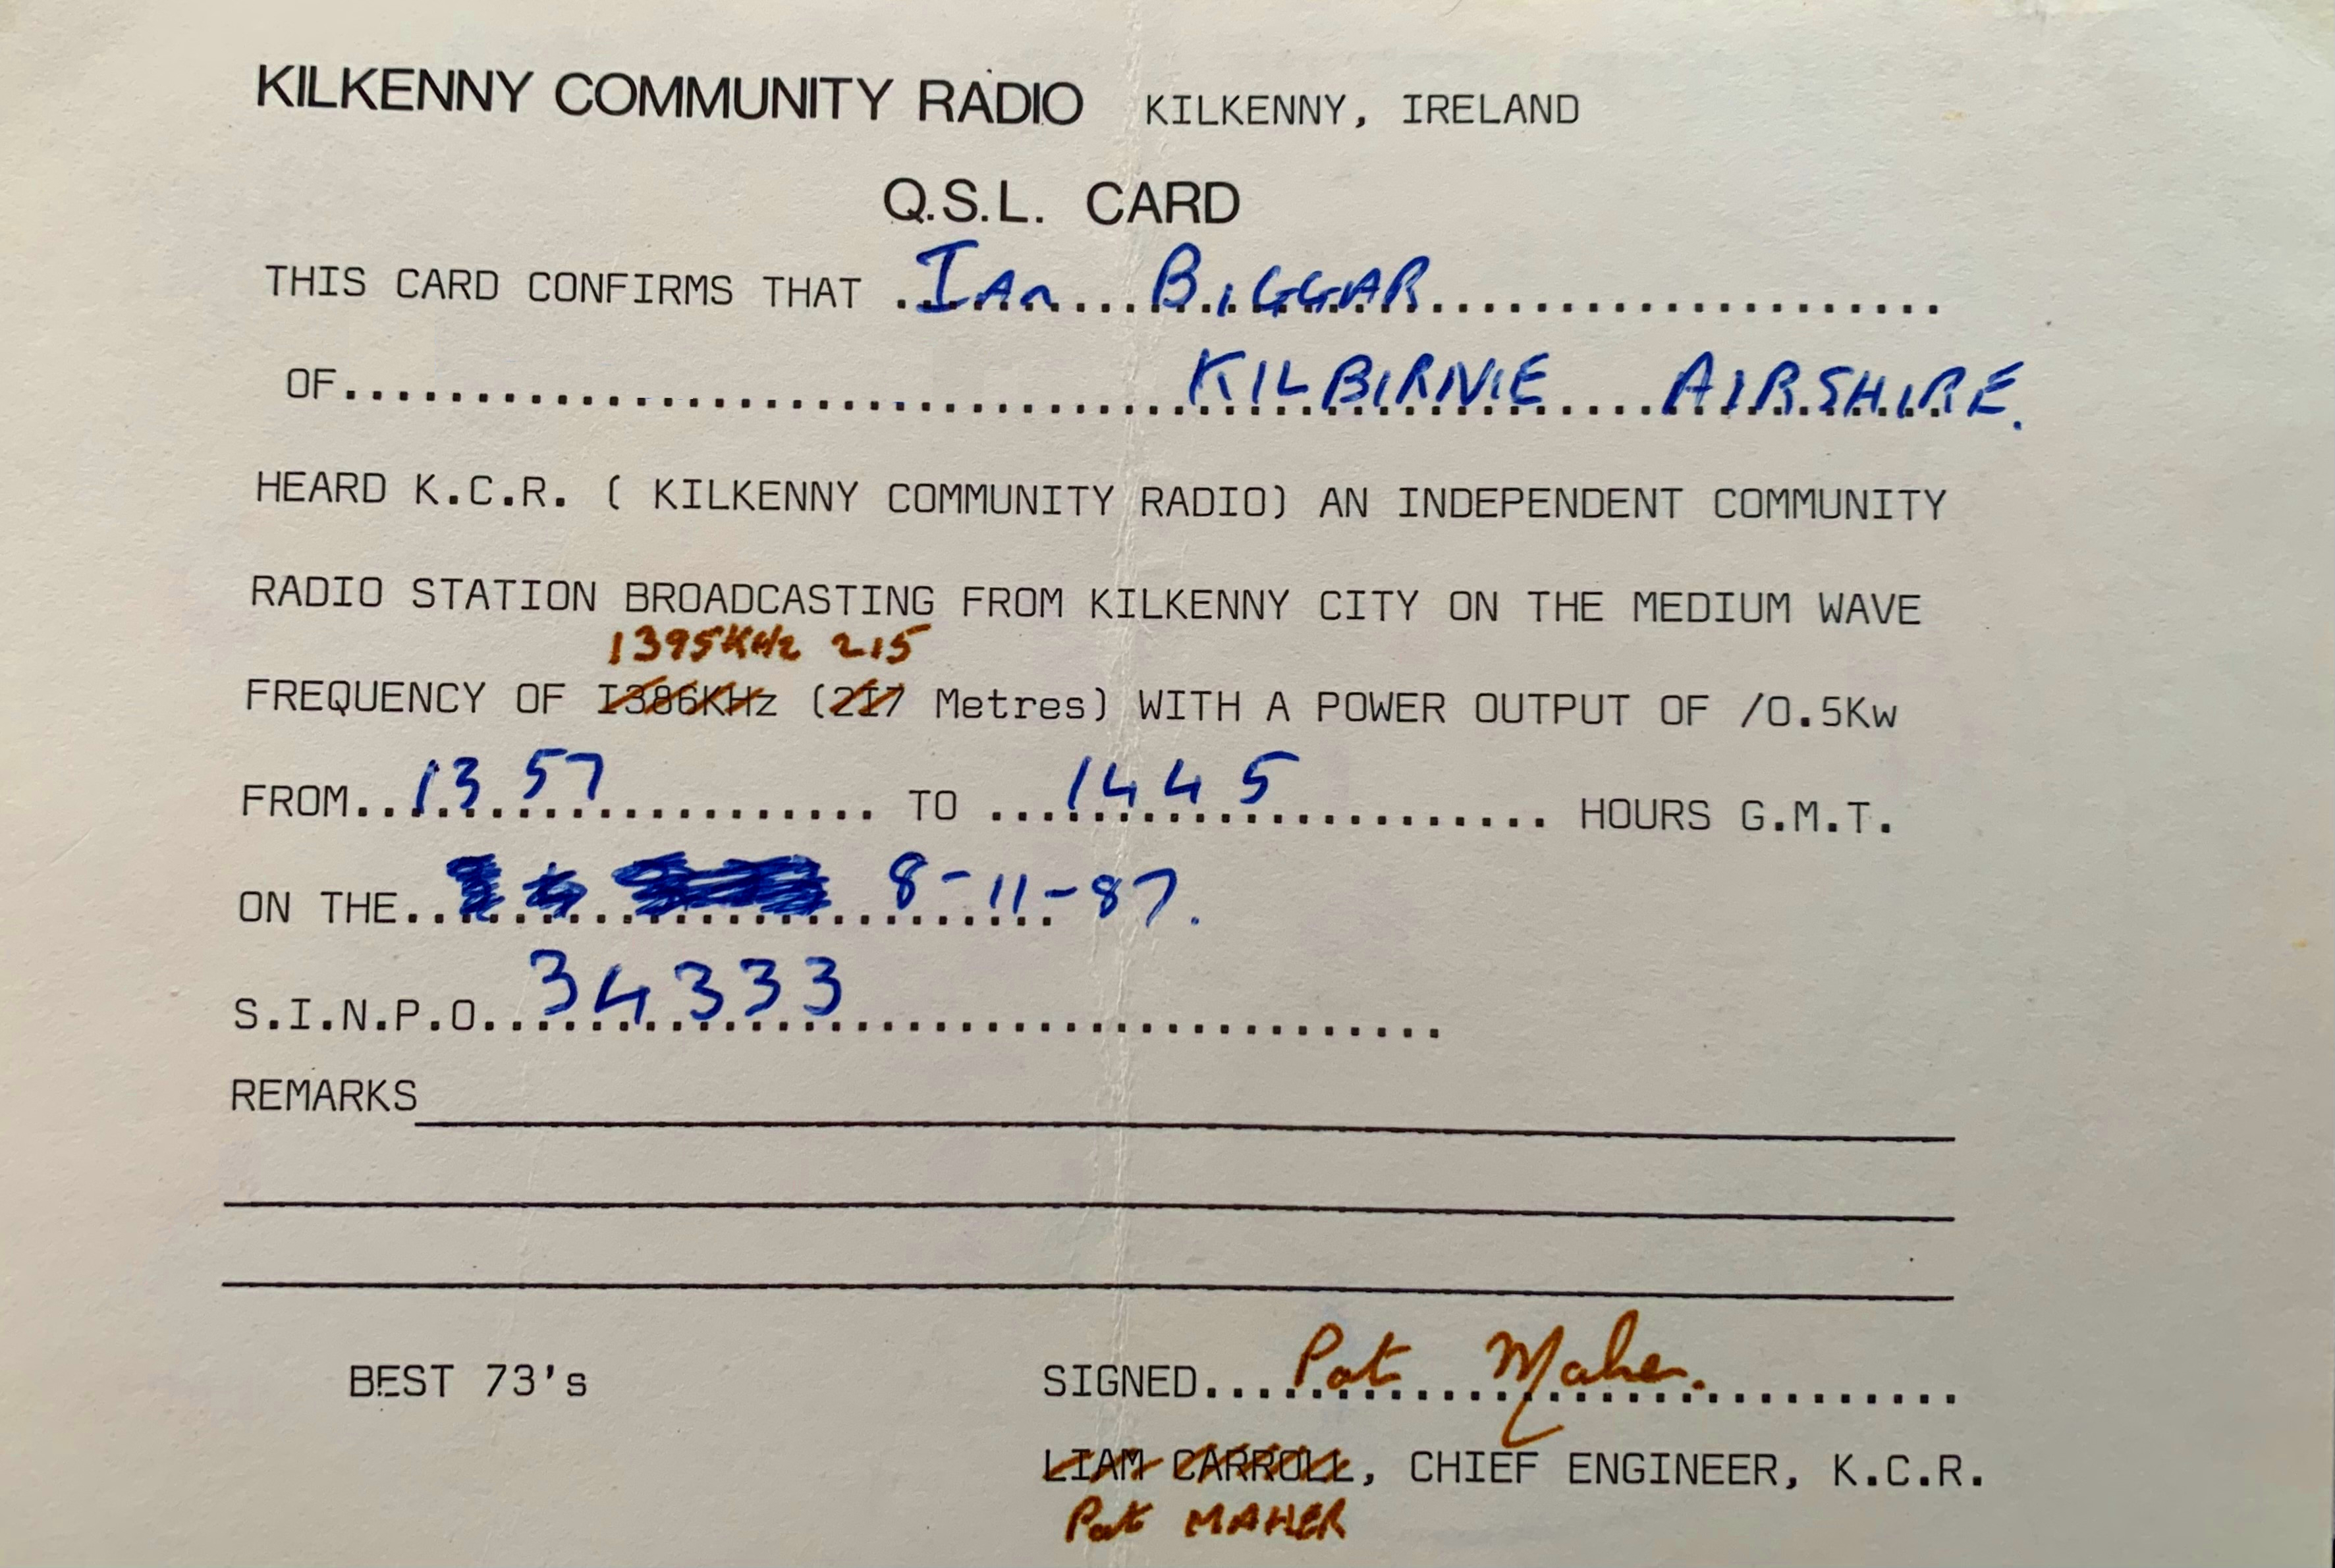 KILKENNY COMMUNITY RADIO KILKENNY, IRELAND
Q.S.L. CARD
THIS CARD CONFIRMS THAT ..Ian...BIGGAR....................
OF................................KILBIRNIE....AIRSHIRE.
HEARD K.C.R. ( KILKENNY COMMUNITY RADIO) AN INDEPENDENT COMMUNITY
RADIO STATION BROADCASTING FROM KILKENNY CITY ON THE MEDIUM WAVE
1395KHz 215
FREQUENCY OF I386KHz (2I7 Metres) WITH A POWER OUTPUT OF /0.5Kw
FROM...1357........... TO ...1445.......... HOURS G.M.T.
ON THE.. 8-11-87.
S.I.N.P.O..34333.......................
REMARKS
BEST 73's SIGNED....Pat Maher..........
LIAM CARROLL, CHIEF ENGINEER, K.C.R.
Pat MAHER